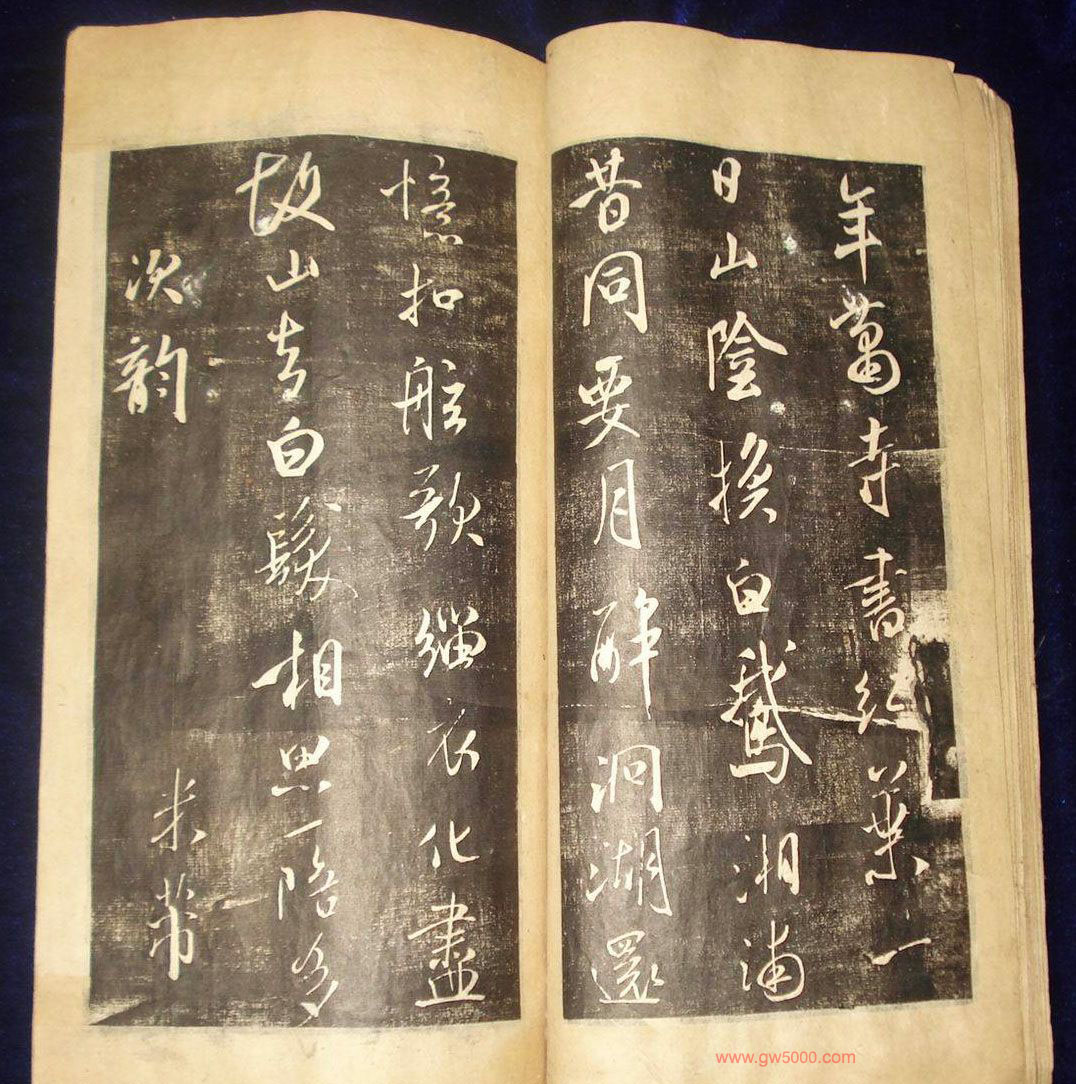 年蕭寺書紅葉一
日山陰換白鵝湘浦
昔同要月醉洞湖還
憶扣舷歌緇衣化盡
故山去白髮相思一陪多
次韵
米芾
www.gw5000.com